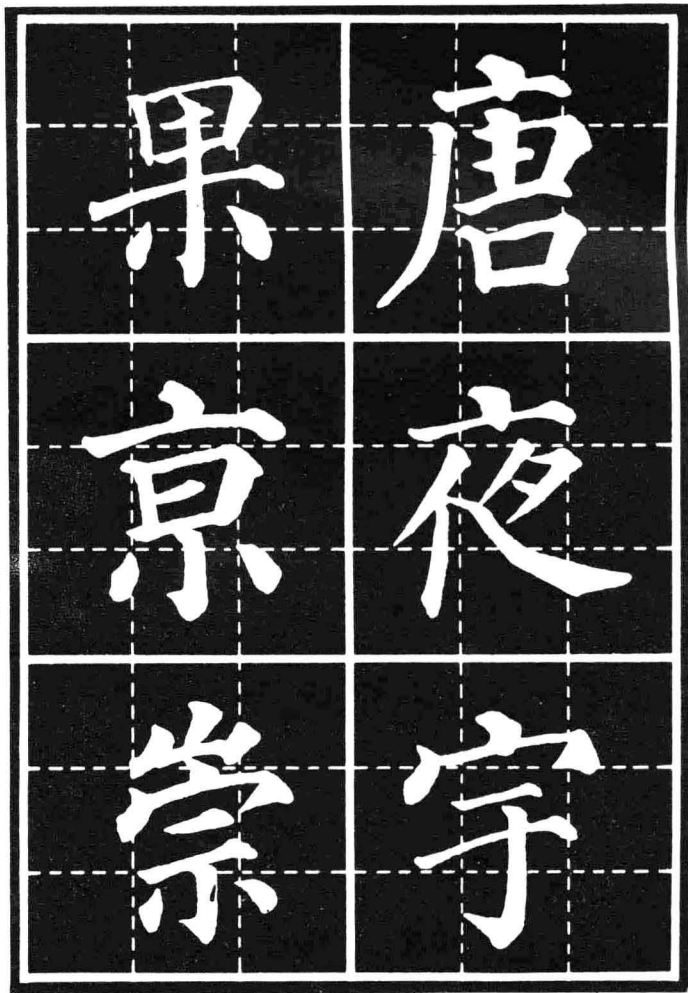 唐夜宇
果亰崇